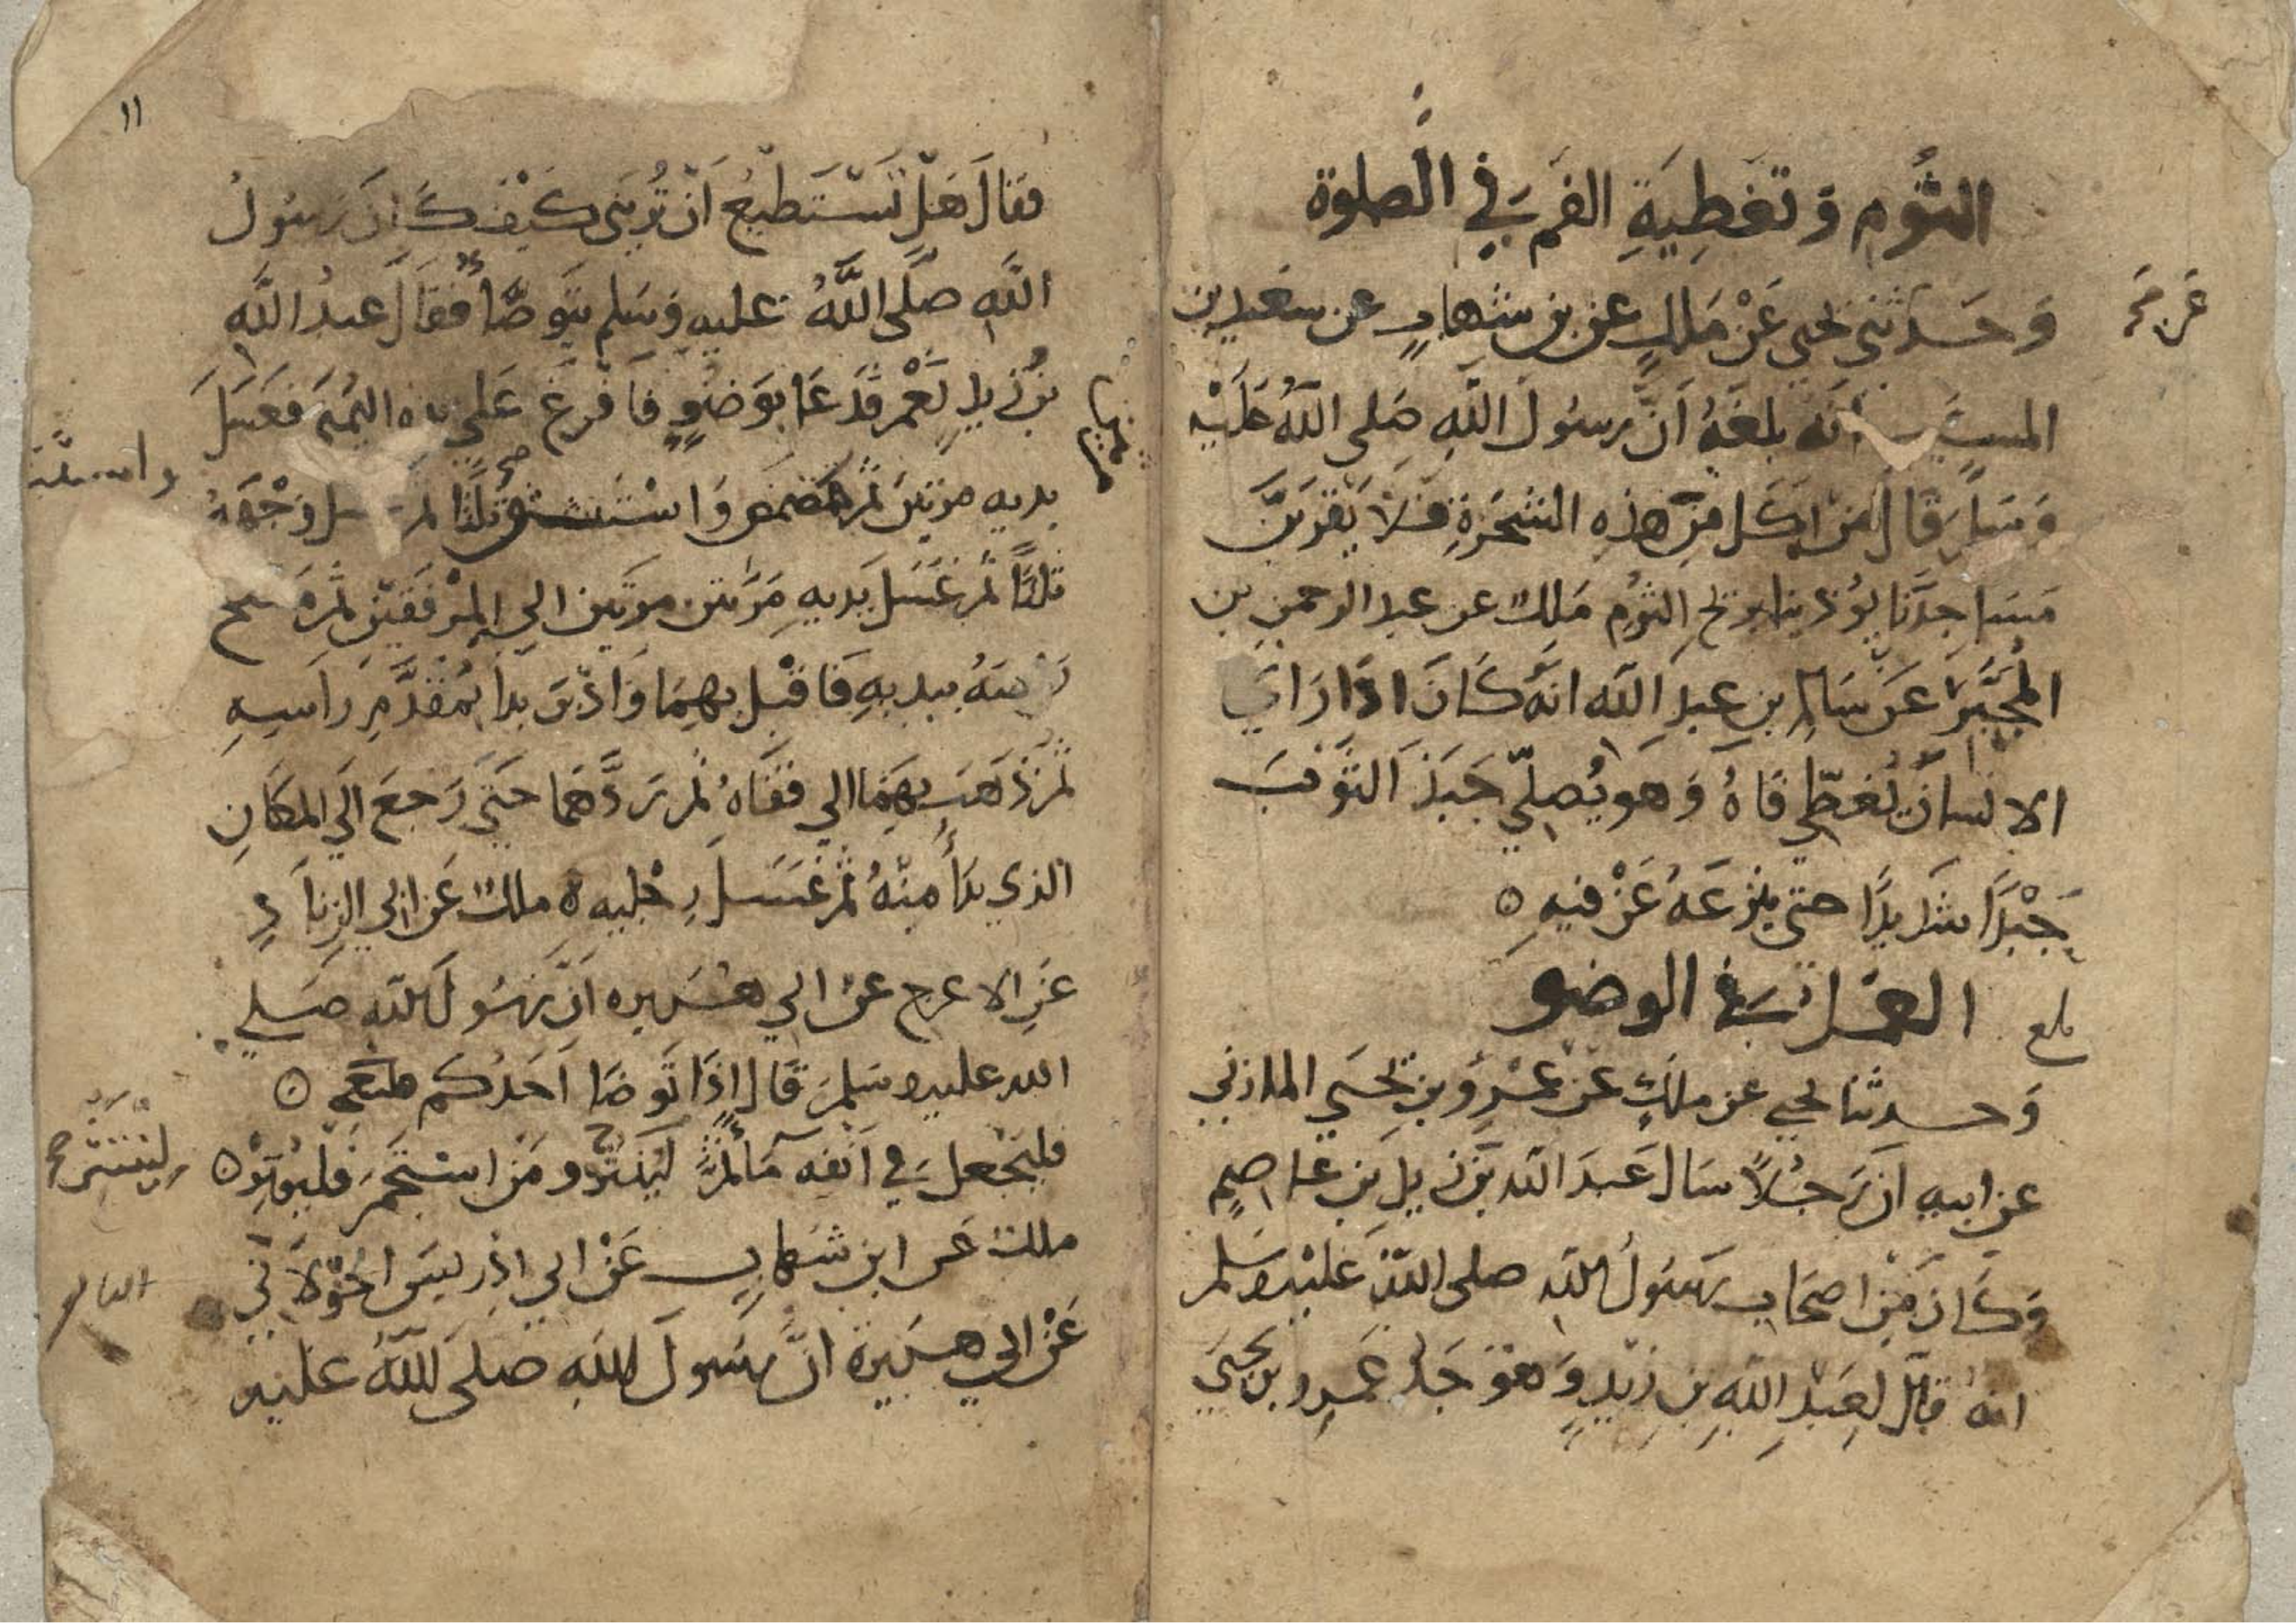 الثُّومِ وَتَغطِيَةِ الفَمِ فِي الصلوة
وَحَدَّثني يحيى عَنْ مَلكٍ عن بن شِهابٍ عن سعيد بن
المسيَّب انه بلغهُ اَنَّ رسُولَ اللهِ صَلى اللهُ عَلَيْه
وَسَلم قَالَ مَن اكَل مِن هذِه الشجَرَةِ فلَا يَقرَبَنَّ
مَسَاجِدَنَا يُوذينا بريح الثُوم مَلك عن عبد الرحمنِ بن
المُجَبَّر عَن سَالمِ بنِ عبدِ الله انهُ كَانَ اذَا رَاي
الانسانَ يُغطّي فَاهُ وَهو يُصلّي جَبَذَ الثَّوْبَ
جَبْذًا شدِيدًا حتى ينزعَهُ عَنْ فيهِ ٥
العمل في الوضو
بلغ
وَحدثنا يحيى عن ملكٍ عَن عَمْرِو بنِ يَحيَى المازني
عن ابيهِ اَن رَجُلًا سَال عَبدَ الله بنَ زيدِ بنِ عاصمٍ
وَكَانَ مِن اصحَابِ رسُول الله صلى اللهُ عَلَيْه وسَلم
انهُ قالَ لِعَبْدِ اللهِ بنِ زيْدٍ وَهوَ جَدُّ عَمرِو بن يحيَى
١١
فقالَ هَلْ تَسْتَطيعُ اَنْ تُرِيَني كيْفَ كَانَ رسُولُ
اللهِ صلَّى اللهُ عليهِ وَسَلم يتَوَضَّأُ فقَالَ عبدُ اللهِ
بنُ زيدٍ نَعَمْ فَدَعَا بوَضُوءٍ فافرَغ عَلى يده اليُمنى فغَسَلَ
يديه مرتين ثم تمضمض وَاسْتَنشق ثلَثًا ثم غسل وَجْهَهُ
ثلثًا ثُم غَسَلَ يَديهِ مَرَّتين مرتين الى المِرْفَقَيْنِ ثم مَسح
رَاسَهُ بيديهِ فَاقبَل بهِمَا وَادْبَرَ بدا بمُقَدَّمِ رَاسِهِ
ثم ذَهَبَ بهمَا الى قفَاهُ ثم رَدَّهمَا حتَى رَجعَ الَى المكَانِ
الذي بَدَأ مِنْهُ ثم غسَلَ رِجْليه ٥ ملك عَن ابي الزِنَادِ
عَنِ الاعرج عَن ابي هريره اَنَّ رسُولَ الله صَلى
الله عليه وسَلم قَال اِذَا تَوضا اَحَدُكم منكم ٥
فليَجْعل في انفِه مَاءً ثم لينثر وَمَن استجمَر فليُوتِرْ ٥
لِيَنْتَثِر صح
ملك عَن ابن شهابٍ عَنْ ابي اِدْرِيسَ الخَوْلَانِّي
عَنْ ابي هريرة انَّ رسُولَ اللهِ صَلى اللهُ عليه